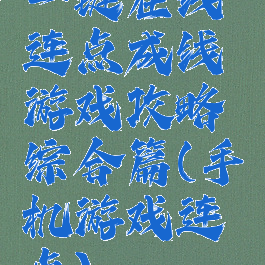 一键在线
连点成线
游戏攻略
综合篇(手
机游戏连
点)